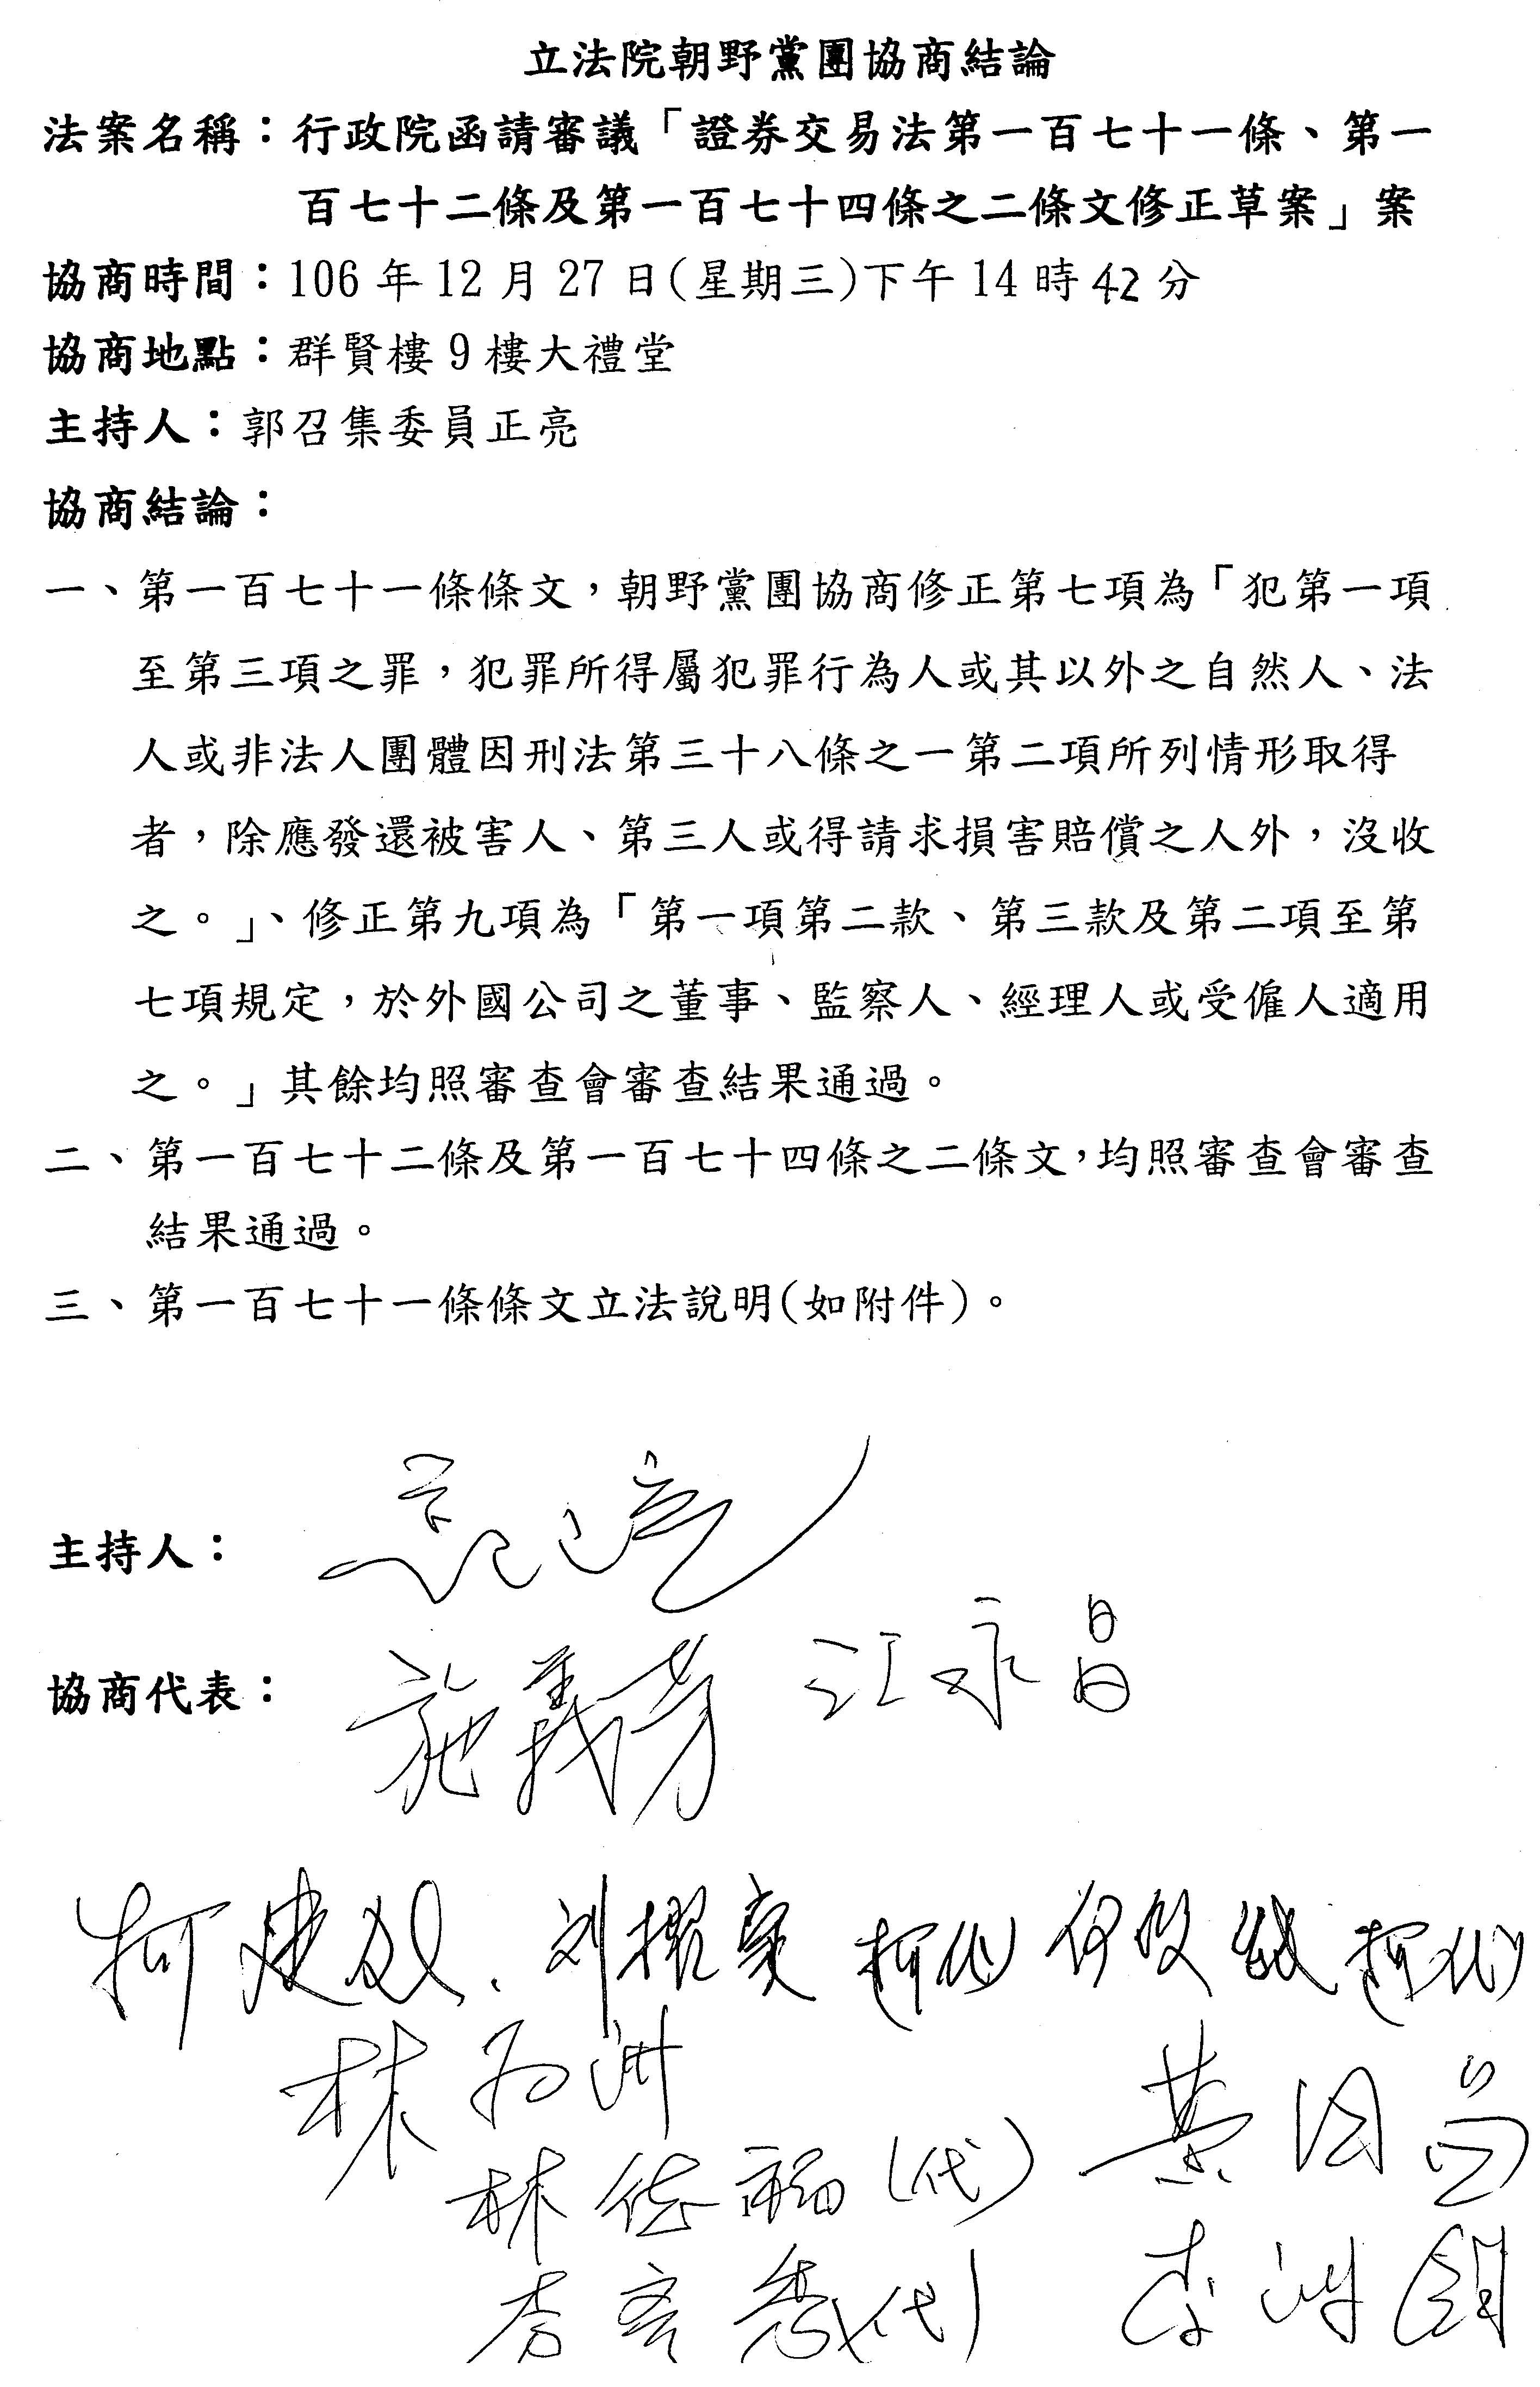 立法院朝野黨團協商結論
法案名稱：行政院函請審議「證券交易法第一百七十一條、第一
百七十二條及第一百七十四條之二條文修正草案」案
協商時間：106年12月27日(星期三)下午14時42分
協商地點：群賢樓9樓大禮堂
主持人：郭召集委員正亮
協商結論：
一、第一百七十一條條文，朝野黨團協商修正第七項為「犯第一項
至第三項之罪，犯罪所得屬犯罪行為人或其以外之自然人、法
人或非法人團體因刑法第三十八條之一第二項所列情形取得
者，除應發還被害人、第三人或得請求損害賠償之人外，沒收
之。」、修正第九項為「第一項第二款、第三款及第二項至第
七項規定，於外國公司之董事、監察人、經理人或受僱人適用
之。」其餘均照審查會審查結果通過。
二、第一百七十二條及第一百七十四條之二條文，均照審查會審查
結果通過。
三、第一百七十一條條文立法說明(如附件)。
主持人：
協商代表：施義芳 江永昌
柯建銘 刘櫂豪 柯(代) 何欣純 柯(代)
林為洲 黃國昌
林德福(代)
李彥秀(代) 李鴻鈞